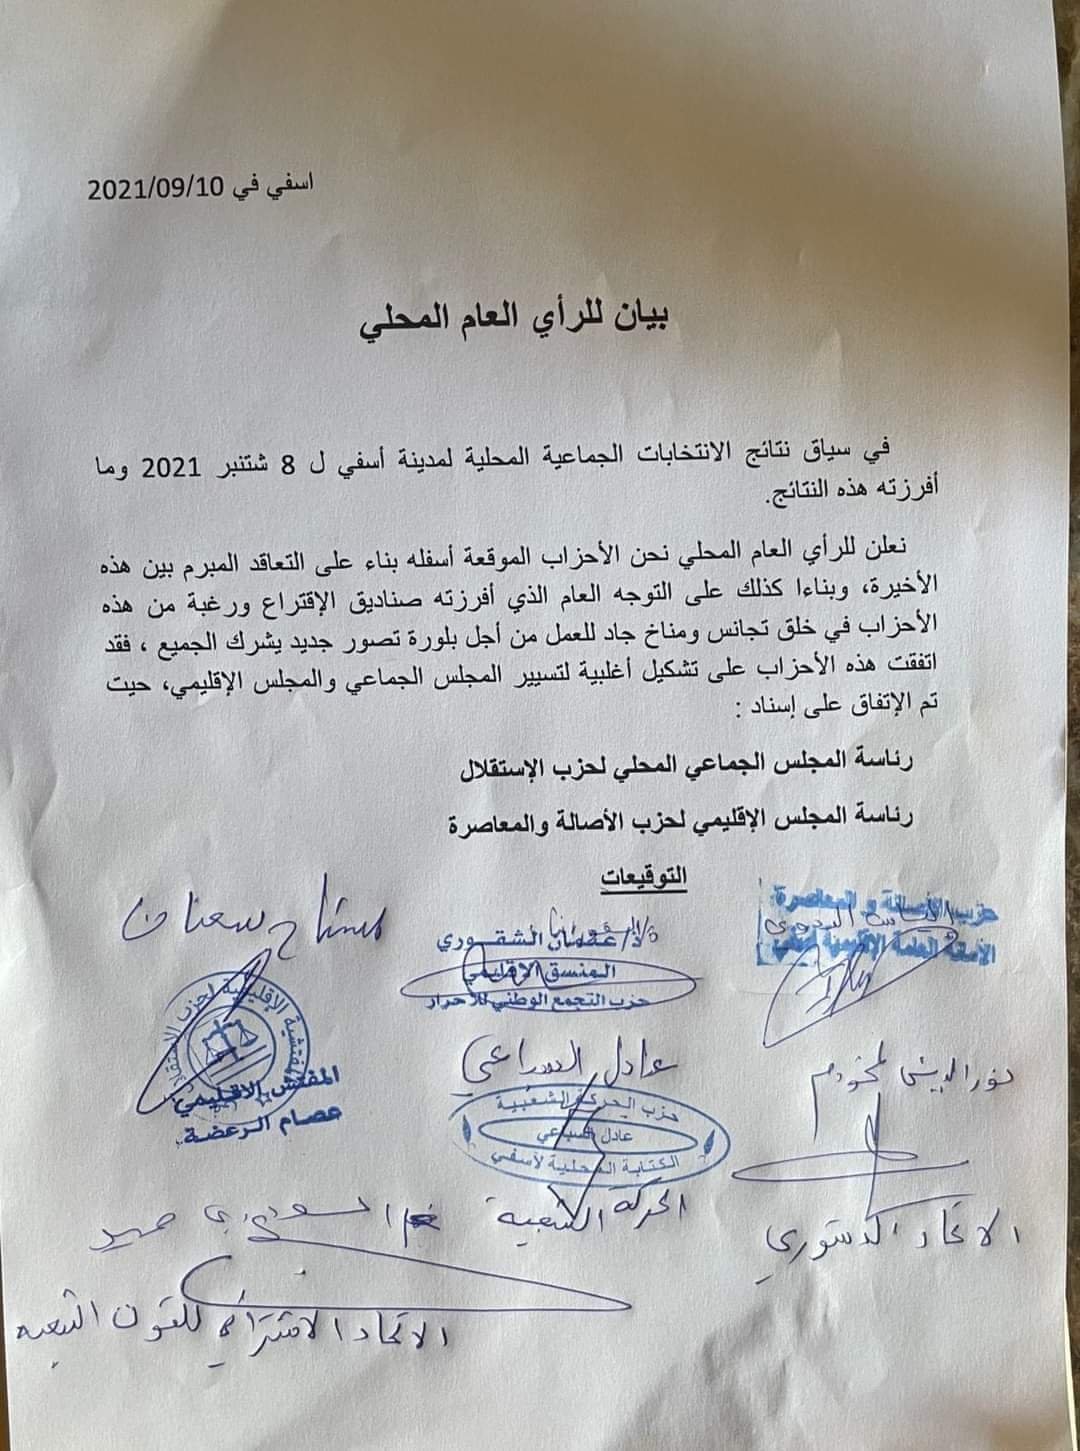 اسفي في 2021/09/10
بيان للرأي العام المحلي
في سياق نتائج الانتخابات الجماعية المحلية لمدينة أسفي ل 8 شتنبر 2021 وما
أفرزته هذه النتائج.
نعلن للرأي العام المحلي نحن الأحزاب الموقعة أسفله بناء على التعاقد المبرم بين هذه
الأخيرة، وبناءا كذلك على التوجه العام الذي أفرزته صناديق الإقتراع ورغبة من هذه
الأحزاب في خلق تجانس ومناخ جاد للعمل من أجل بلورة تصور جديد يشرك الجميع ، فقد
اتفقت هذه الأحزاب على تشكيل أغلبية لتسيير المجلس الجماعي والمجلس الإقليمي، حيت
تم الإتفاق على إسناد :
رئاسة المجلس الجماعي المحلي لحزب الإستقلال
رئاسة المجلس الإقليمي لحزب الأصالة والمعاصرة
التوقيعات
حزب الأصالة و المعاصرة
الأمانة العامة الإقليمية
د/عثمان الشقوري
المنسق الاقليمي
حزب التجمع الوطني للأحرار
سعنان
المفتشية الإقليمية لحزب
المفتش الاقليمي
عصام الرعضة
نور الدين مخدوم
الاتحاد الدستوري
عادل السباعي
حزب الحركة الشعبية
عادل السباعي
الكتابة المحلية لأسفي
الحركة الشعبية
الاتحاد الاشتراكي للقوات الشعبية